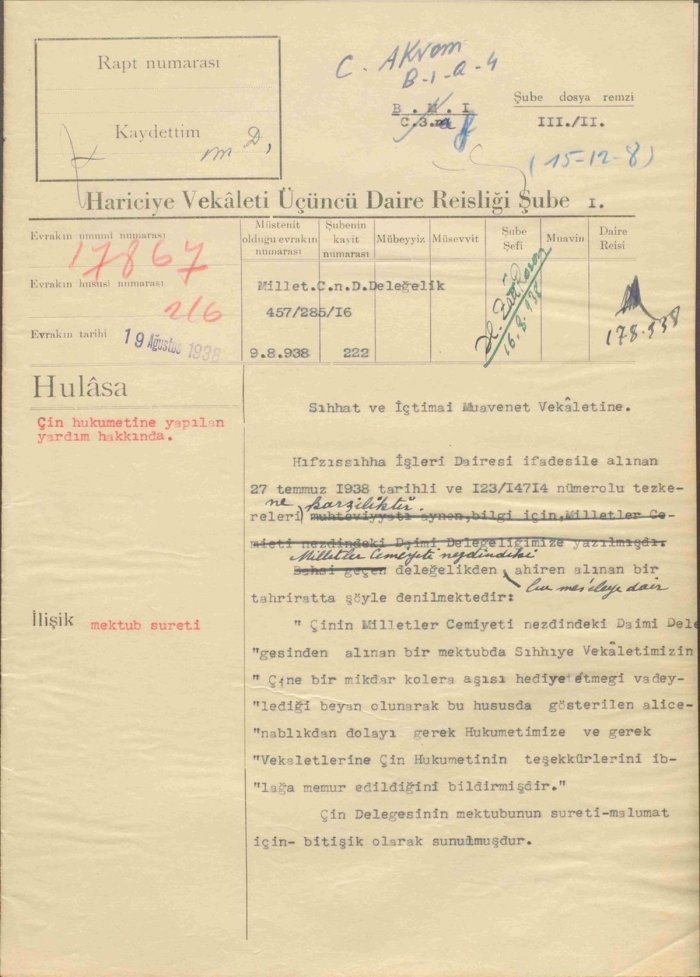 Rapt numarası
Kaydettim
C. AKvam
B-1-a-4
B . M . I
C.3.
Şube dosya remzi
III./II.
(15-12-8)
Hariciye Vekâleti Üçüncü Daire Reisliği Şube I.
Evrakın umumi numarası
17867
Evrakın hususi numarası
216
Evrakın tarihi
19 Ağustos 1938
Müstenit olduğu evrakın numarası
Şubenin kayit numarası
Mübeyyiz
Müsevvit
Şube Şefi
Muavin
Daire Reisi
Millet.C.n.D.Deleğelik
457/285/I6
9.8.938
222
16.8.938
178.938
Hulâsa
Çin hukumetine yapılan
yardım hakkında.
İlişik
mektub sureti
Sıhhat ve İçtimai Muavenet Vekâletine.
Hıfzıssıhha İşleri Dairesi ifadesile alınan
27 temmuz I938 tarihli ve I23/I47I4 nümerolu tezke-
ne karşılıktır.
releri muhteviyyatı aynen,bilgi için,Milletler Ce-
mieti nezdindeki Daimi Delegeliğimize yazılmışdı.
Milletler Cemiyeti nezdindeki
Bahsi geçen deleğelikden, ahiren alınan bir
bu mes'eleye dair
tahriratta şöyle denilmektedir:
" Çinin Milletler Cemiyeti nezdindeki Daimi Dele
"gesinden alınan bir mektubda Sıhhıye Vekâletimizin
" Çine bir mikdar kolera aşısı hediye etmegi vadey-
"lediği beyan olunarak bu hususda gösterilen alice-
"nablıkdan dolayı gerek Hukumetimize ve gerek
"Vekaletlerine Çin Hukumetinin teşekkürlerini ib-
"lağa memur edildiğini bildirmişdir."
Çin Delegesinin mektubunun sureti-malumat
için- bitişik olarak sunulmuşdur.